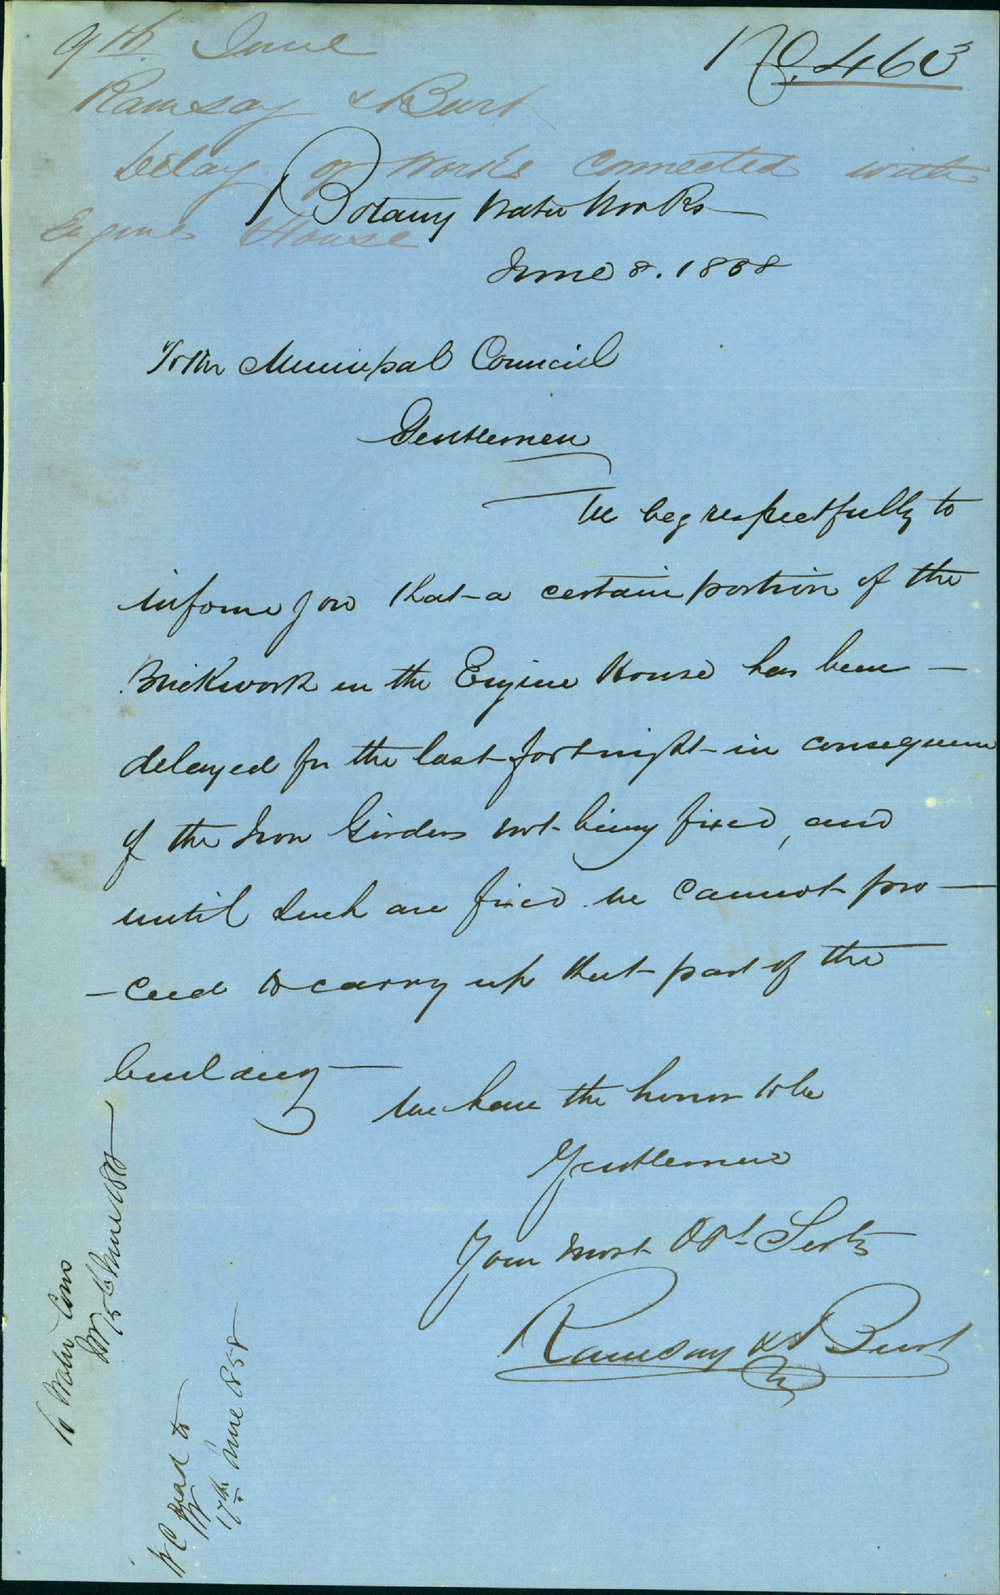 9th June
No. 463
Ramsay & Burt
Delay of works connected with
Engine House
Botany Water Works
June 8. 1858
To the Municipal Council
Gentlemen
We beg respectfully to
inform you that a certain portion of the
Brickwork in the Engine House has been
delayed for the last fortnight in consequence
of the Iron Girders not being fixed, and
until such are fixed we cannot pro-
-ceed to carry up that part of the
building
We have the honor to be
Gentlemen
Your most Obt Servts
Ramsay & Burt
To Water Com
15 June 1858
W C
17th June 1858